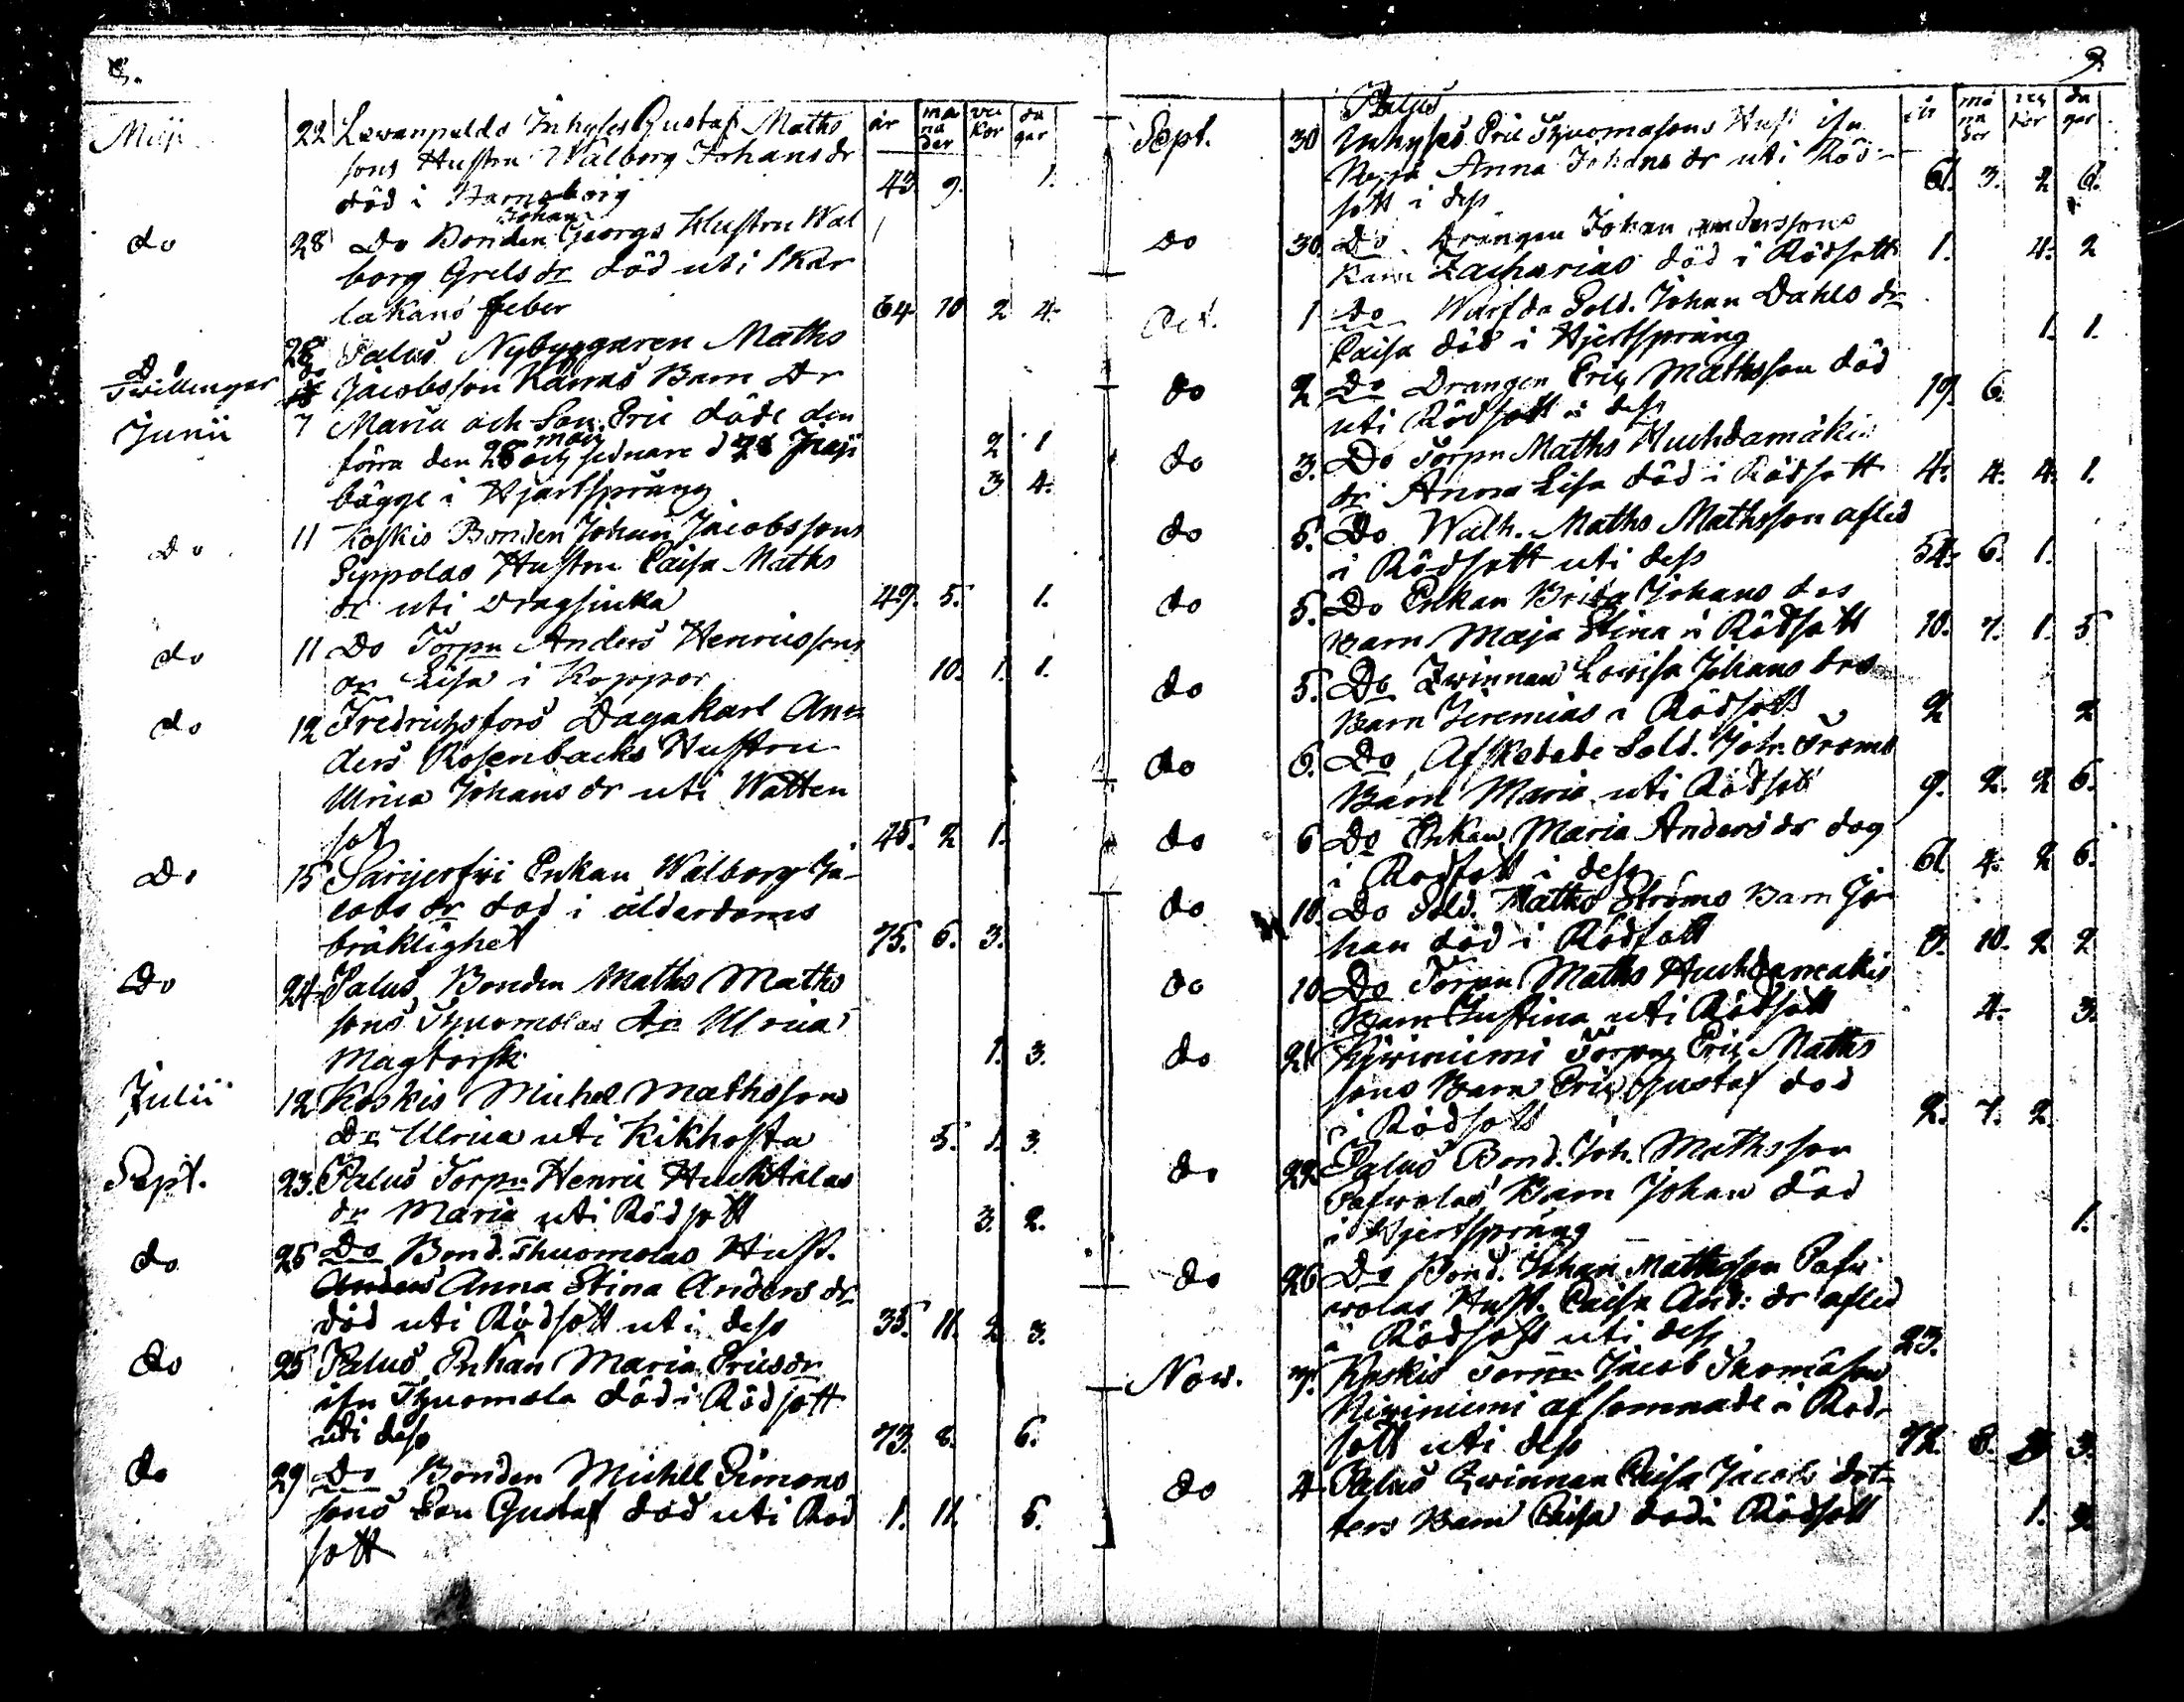 8.
år må na der vec kor da gar
Maji 22 Lewanpeldo Inhyses Gustaf Maths
sons Hustru Walborg Johans dr
död i Barnsbörd 43. 9. 1.
do 28 Do Bonden Johan Georgs Hustru Wal
borg Grels dr död uti Skar
lakans feber 64 10 2 4.
Do 28 Palus Nybyggaren Maths
Twillingar Jacobsson Karras Barn Dr
Junii 7 Maria och Son Eric döde den
förra den 28 maji och sednare d 7 2 1
bägge i Hjertsprång 3 4.
Do 11 Koskis Bonden Johan Jacobssons
Sippolas Hustru Caisa Maths
dr uti Dragsiuka 49. 5. 1.
do 11 Do Torpn Anders Henricssons
dr Lisa i Koppor 10. 1. 1.
do 12 Fredrichsfors Dagakarl An
ders Rosenbacks Hustru
Ulrica Johans dr uti Watten
sot 45. 2 1.
Do 15 Enkan Walborg Ja
cobs dr död i ålderdoms
bräklighet 75. 6. 3.
Do 24 Palus Bonden Maths Maths
sons Tyuomolas dr Ulrica
Magtorsk 1. 3.
Julii 12 Koskis Michel Mathssons
Dr Ulrica uti Kikhosta 5. 1. 3
Sept. 23. Palus Torpn Henric Huchtalas
dr Maria uti Rödsott 3. 2.
do 25 Do Bond. Thuomolas Hust.
Anders Anna Stina Anders dr
död uti Rödsott uti dess 35. 11. 2 3.
do 25 Palus Enkan Maria Erics dr
ifn Tyuomola död i Rödsott
uti dess 73. 8. 6.
do 29 Do Bonden Michel Simons
sons Son Gustaf död uti Röd 1. 11. 5.
sott
9.
år må na der vec kor da gar
Palus
Sept. 30 Inhyses Eric Tyuomasons Hust ifn
Anna Johans dr uti Röd
sott i dess 61. 3. 2 6.
do 30. Do Drängen Johan Anderssons
Barn Zacharias död i Rödsott 1. 4. 2
Oct. 1 do Warfda Sold. Johan Dahls dr
Caisa död i Hjertsprång 1. 1.
do 2 Do Drängen Eric Mathsson död
uti Rödsott i dess 19. 6.
do 3. Do Torpn Maths Huchdamäkis
dr Anna Lisa död i Rödsott 4. 4. 4. 1.
do 5. Do Walh. Maths Mathsson afled
i Rödsott uti dess 54. 6. 1.
do 5. Do Enkan Brita Johans drs
Barn Maja Stina i Rödsott 10. 7. 1. 5
do 5. Do Qwinnan Lowisa Johans drs
Barn Jeremias i Rödsott 2 2
do 6. Do Afskedade Sold. Joh. Froms
Barn Maria uti Rödsott 9. 2. 2 6.
do 6 Do Enkan Maria Anders dr dog
i Rödsott i dess 61. 4. 2 6.
do 10. Do Sold. Maths Ströms Barn Jo
han död i Rödsott 8. 10. 2 2
do 10 Do Torpn Maths Huchdamäkis
Barn Justina uti Rödsott 4. 3.
do 21 Kiwiniemi Torpn Eric Maths
sons Barn Eric Gustaf död
i Rödsott 2. 7. 2.
do 22 Palus Bond. Joh. Mathsson
Barn Johan död
i Hjertsprång 1.
do 26 Do Bond. Johan Mathsson
Hust. Caisa And: dr afled
i Rödsott uti dess 23.
Nov. 3. Koskis Torpn Jacob Thomasson
Kiwiniemi afsomnade i Röd
sott uti dess 72. 8. 3.
do 4 Palus Qwinnan Caisa Jacobs dot
ters Barn Caisa död i Rödsott 1. 2